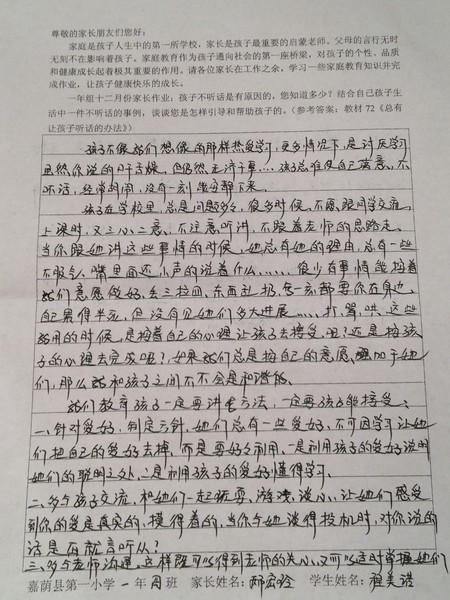 尊敬的家长朋友们您好：
家庭是孩子人生中的第一所学校，家长是孩子最重要的启蒙老师。父母的言行无时
无刻不在影响着孩子。家庭教育作为孩子通向社会的第一座桥梁，对孩子的个性、品质
和健康成长起着极其重要的作用。请各位家长在工作之余，学习一些家庭教育知识并完
成作业，让孩子健康快乐的成长。
一年组十二月份家长作业：孩子不听话是有原因的，您知道多少？结合自己孩子生
活中一件不听话的事例，谈谈您是怎样引导和帮助孩子的。（参考答案：教材72《总有
让孩子听话的办法》）
孩子不像我们想像的那样热爱学习，更多情况下，是讨厌学习
虽然你说的口干舌燥，但仍然无济于事……孩子总难随自己意，不
听话，经常胡闹，没有一刻能安静下来。
孩子在学校里，总是问题多多，很多时候，不愿跟同学交流，
上课时，又三心二意，不注意听讲，不跟着老师的思路走。
当你跟她讲这些事情的时候，她总有她的理由，总有一些
不服气，嘴里面还小声的说着什么……，很少有事情能按着
我们意愿做好，丢三拉四、东面乱扔，每一刻都要你在身边，
自己累得半死，但没有见她们多大进展……，打、骂、哄，这些
的时候，是按着自己的心理让孩子去接受呢？还是按孩
子的心理去完成呢？如果我们总是按自己的意愿，强加于她
们，那么我和孩子之间不会是和谐。
我们教育孩子一定要讲究方法，一定要孩子能接受：
一、针对爱好，制定方针，她们总有一些爱好，不可因学习让她
们把自己的爱好去掉，而是要好好利用，一是利用孩子的爱好说明
她们的聪明之处，二是利用孩子的爱好懂得学习。
二、多与孩子交流，和她们一起玩耍、游戏、谈心，让她们感受
到你的爱是真实的，摸得着的，当你与她谈得投机时，对你说的
话是否就言听从？
三、多与老师沟通，这样既可以得到老师的关心，又可以适时掌握她们
嘉荫县第一小学 一年 周 班 家长姓名： 学生姓名：程美诺